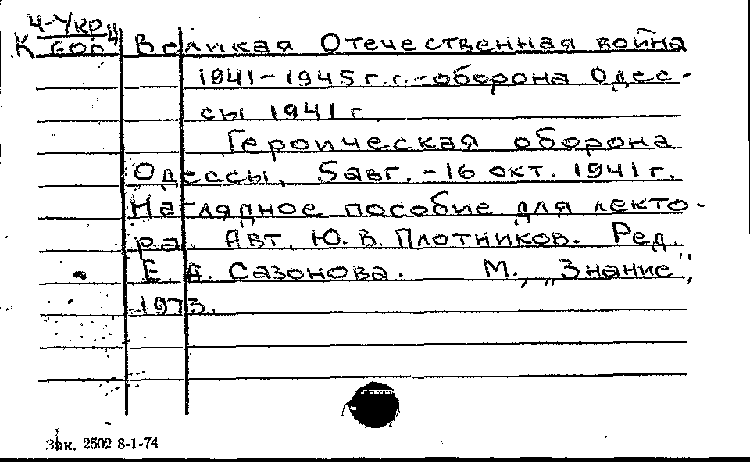 Ч-Укр.
К бор Великая Отечественная война
1941-1945 г.г.-оборона Одес-
сы 1941 г.
Героическая оборона
Одессы, 5 авг. - 16 окт. 1941 г.
Наглядное пособие для лекто-
ра. Авт. Ю. В. Плотников. Ред.
Е. А. Сазонова. М., „Знание",
1973.
Зак. 2502 8-1-74